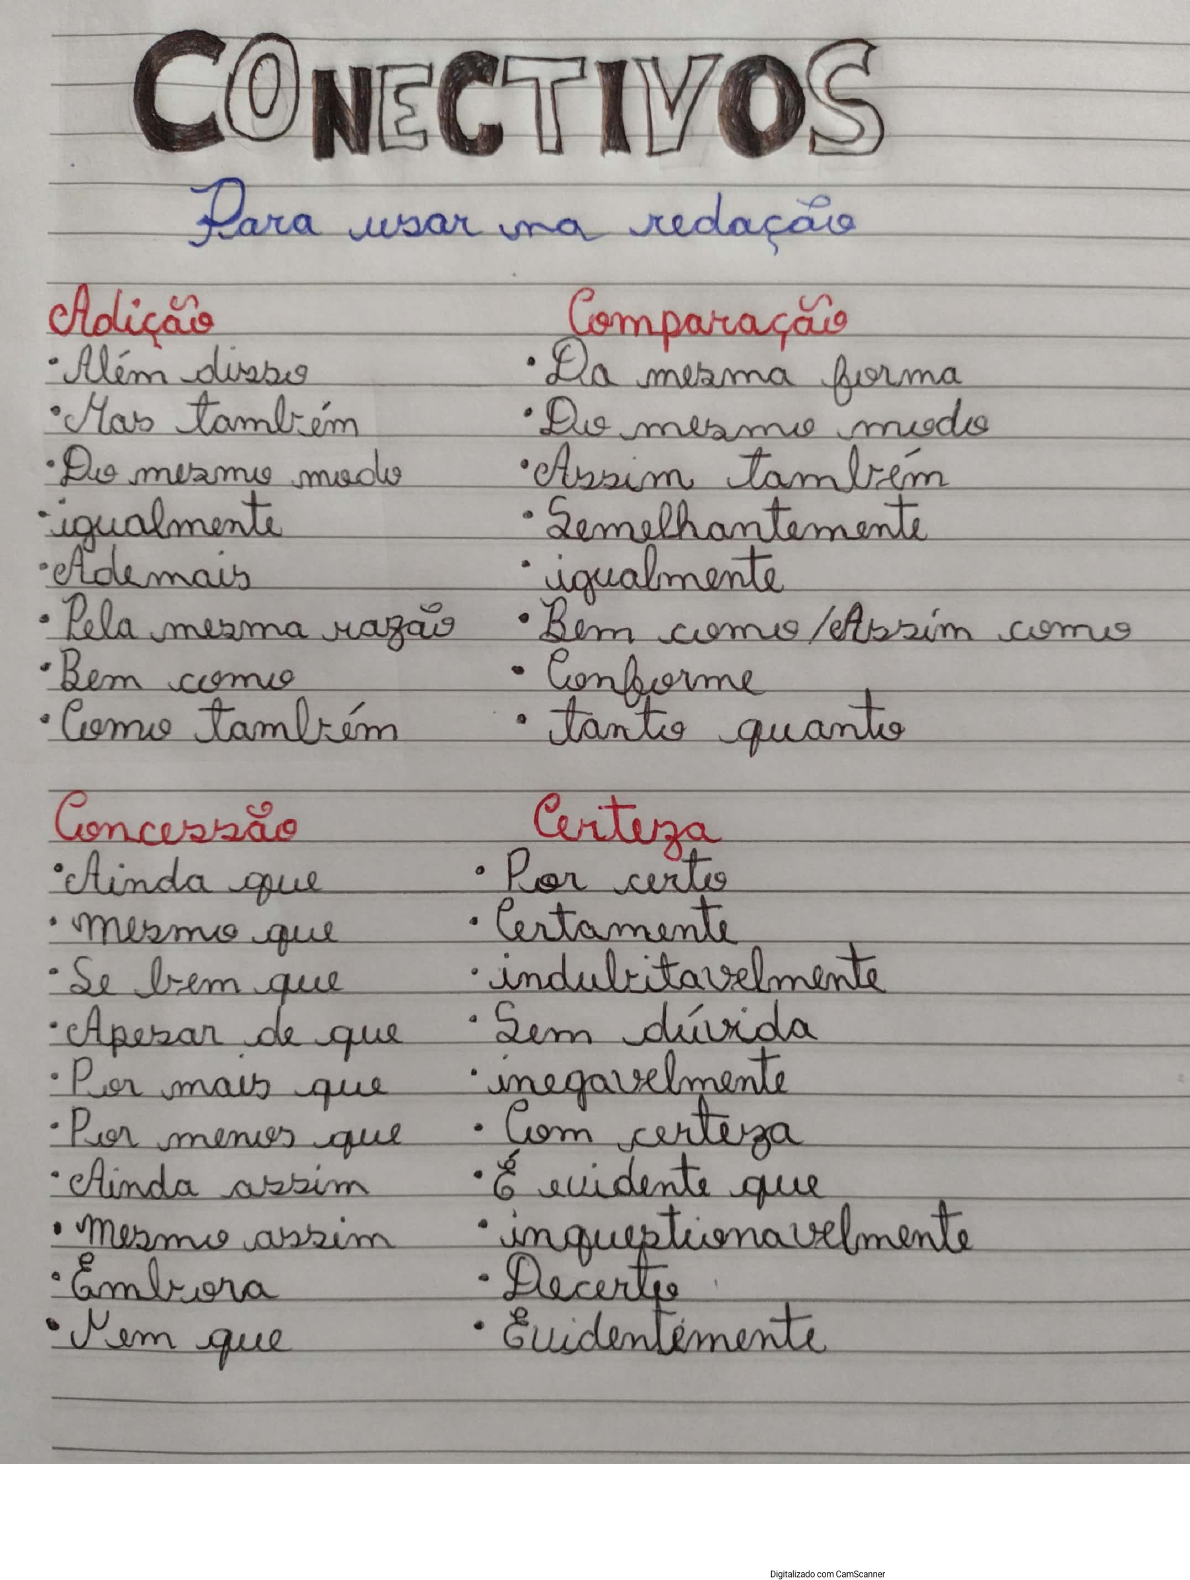 CONECTIVOS
Para usar na redação
Adição
• Além disso
• Mas também
• Do mesmo modo
• igualmente
• Ademais
• Pela mesma razão
• Bem como
• Como também
Comparação
• Da mesma forma
• Do mesmo modo
• Assim também
• Semelhantemente
• igualmente
• Bem como/Assim como
• Conforme
• tanto quanto
Concessão
• Ainda que
• mesmo que
• Se bem que
• Apesar de que
• Por mais que
• Por menos que
• Ainda assim
• mesmo assim
• Embora
• Nem que
Certeza
• Por certo
• Certamente
• indubitavelmente
• Sem dúvida
• inegavelmente
• Com certeza
• É evidente que
• inquestionavelmente
• Decerto
• Evidentemente
Digitalizado com CamScanner